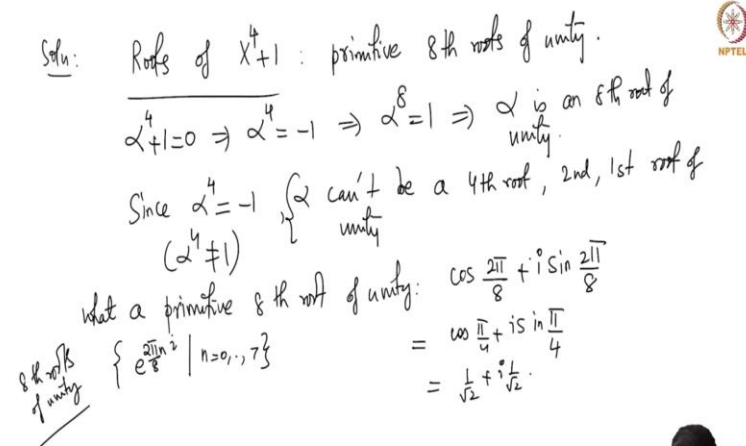 Soln: Roots of X^4+1 : primitive 8th roots of unity.
α^4+1=0 ⇒ α^4 = -1 ⇒ α^8=1 ⇒ α is an 8th root of unity.
Since α^4 = -1, { α can't be a 4th root, 2nd, 1st root of unity
(α^4 ≠ 1)
What a primitive 8th root of unity: cos 2π/8 + i sin 2π/8
= cos π/4 + i sin π/4
= 1/√2 + i 1/√2.
8th roots of unity { e^(2πn i/8) | n=0,..,7}
NPTEL